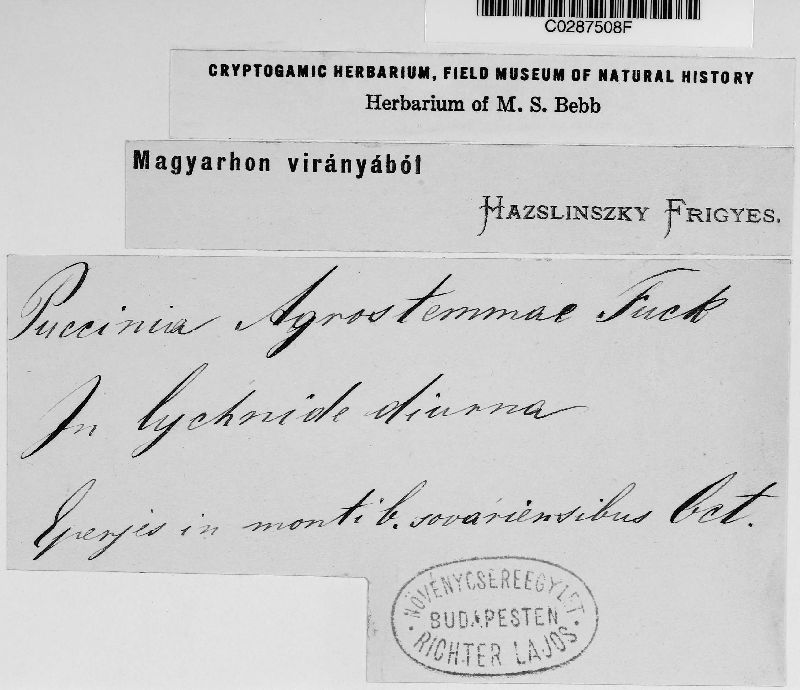 C0287508F
CRYPTOGAMIC HERBARIUM, FIELD MUSEUM OF NATURAL HISTORY
Herbarium of M. S. Bebb
Magyarhon virányából
HAZSLINSZKY FRIGYES.
Puccinia Agrostemmae Fuck
In lychnide diurna
Eperjes in montib. sováriensibus Oct.
NÖVÉNYCSEREEGYLET
BUDAPESTEN
RICHTER LAJOS